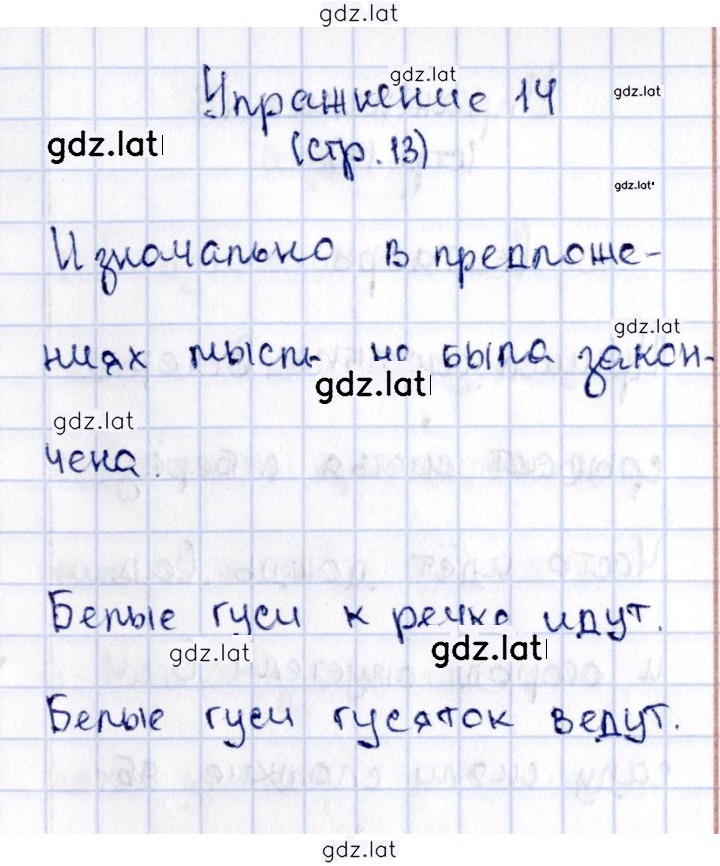 gdz.lat
gdz.lat
Упражнение 14
gdz.lat
gdz.lat
(стр. 13)
gdz.lat
Изначально в предложе-
gdz.lat
ниях мысль не была закон-
gdz.lat
gdz.lat
чена.
Белые гуси к речке идут.
gdz.lat
gdz.lat
Белые гуси гусяток ведут.
gdz.lat